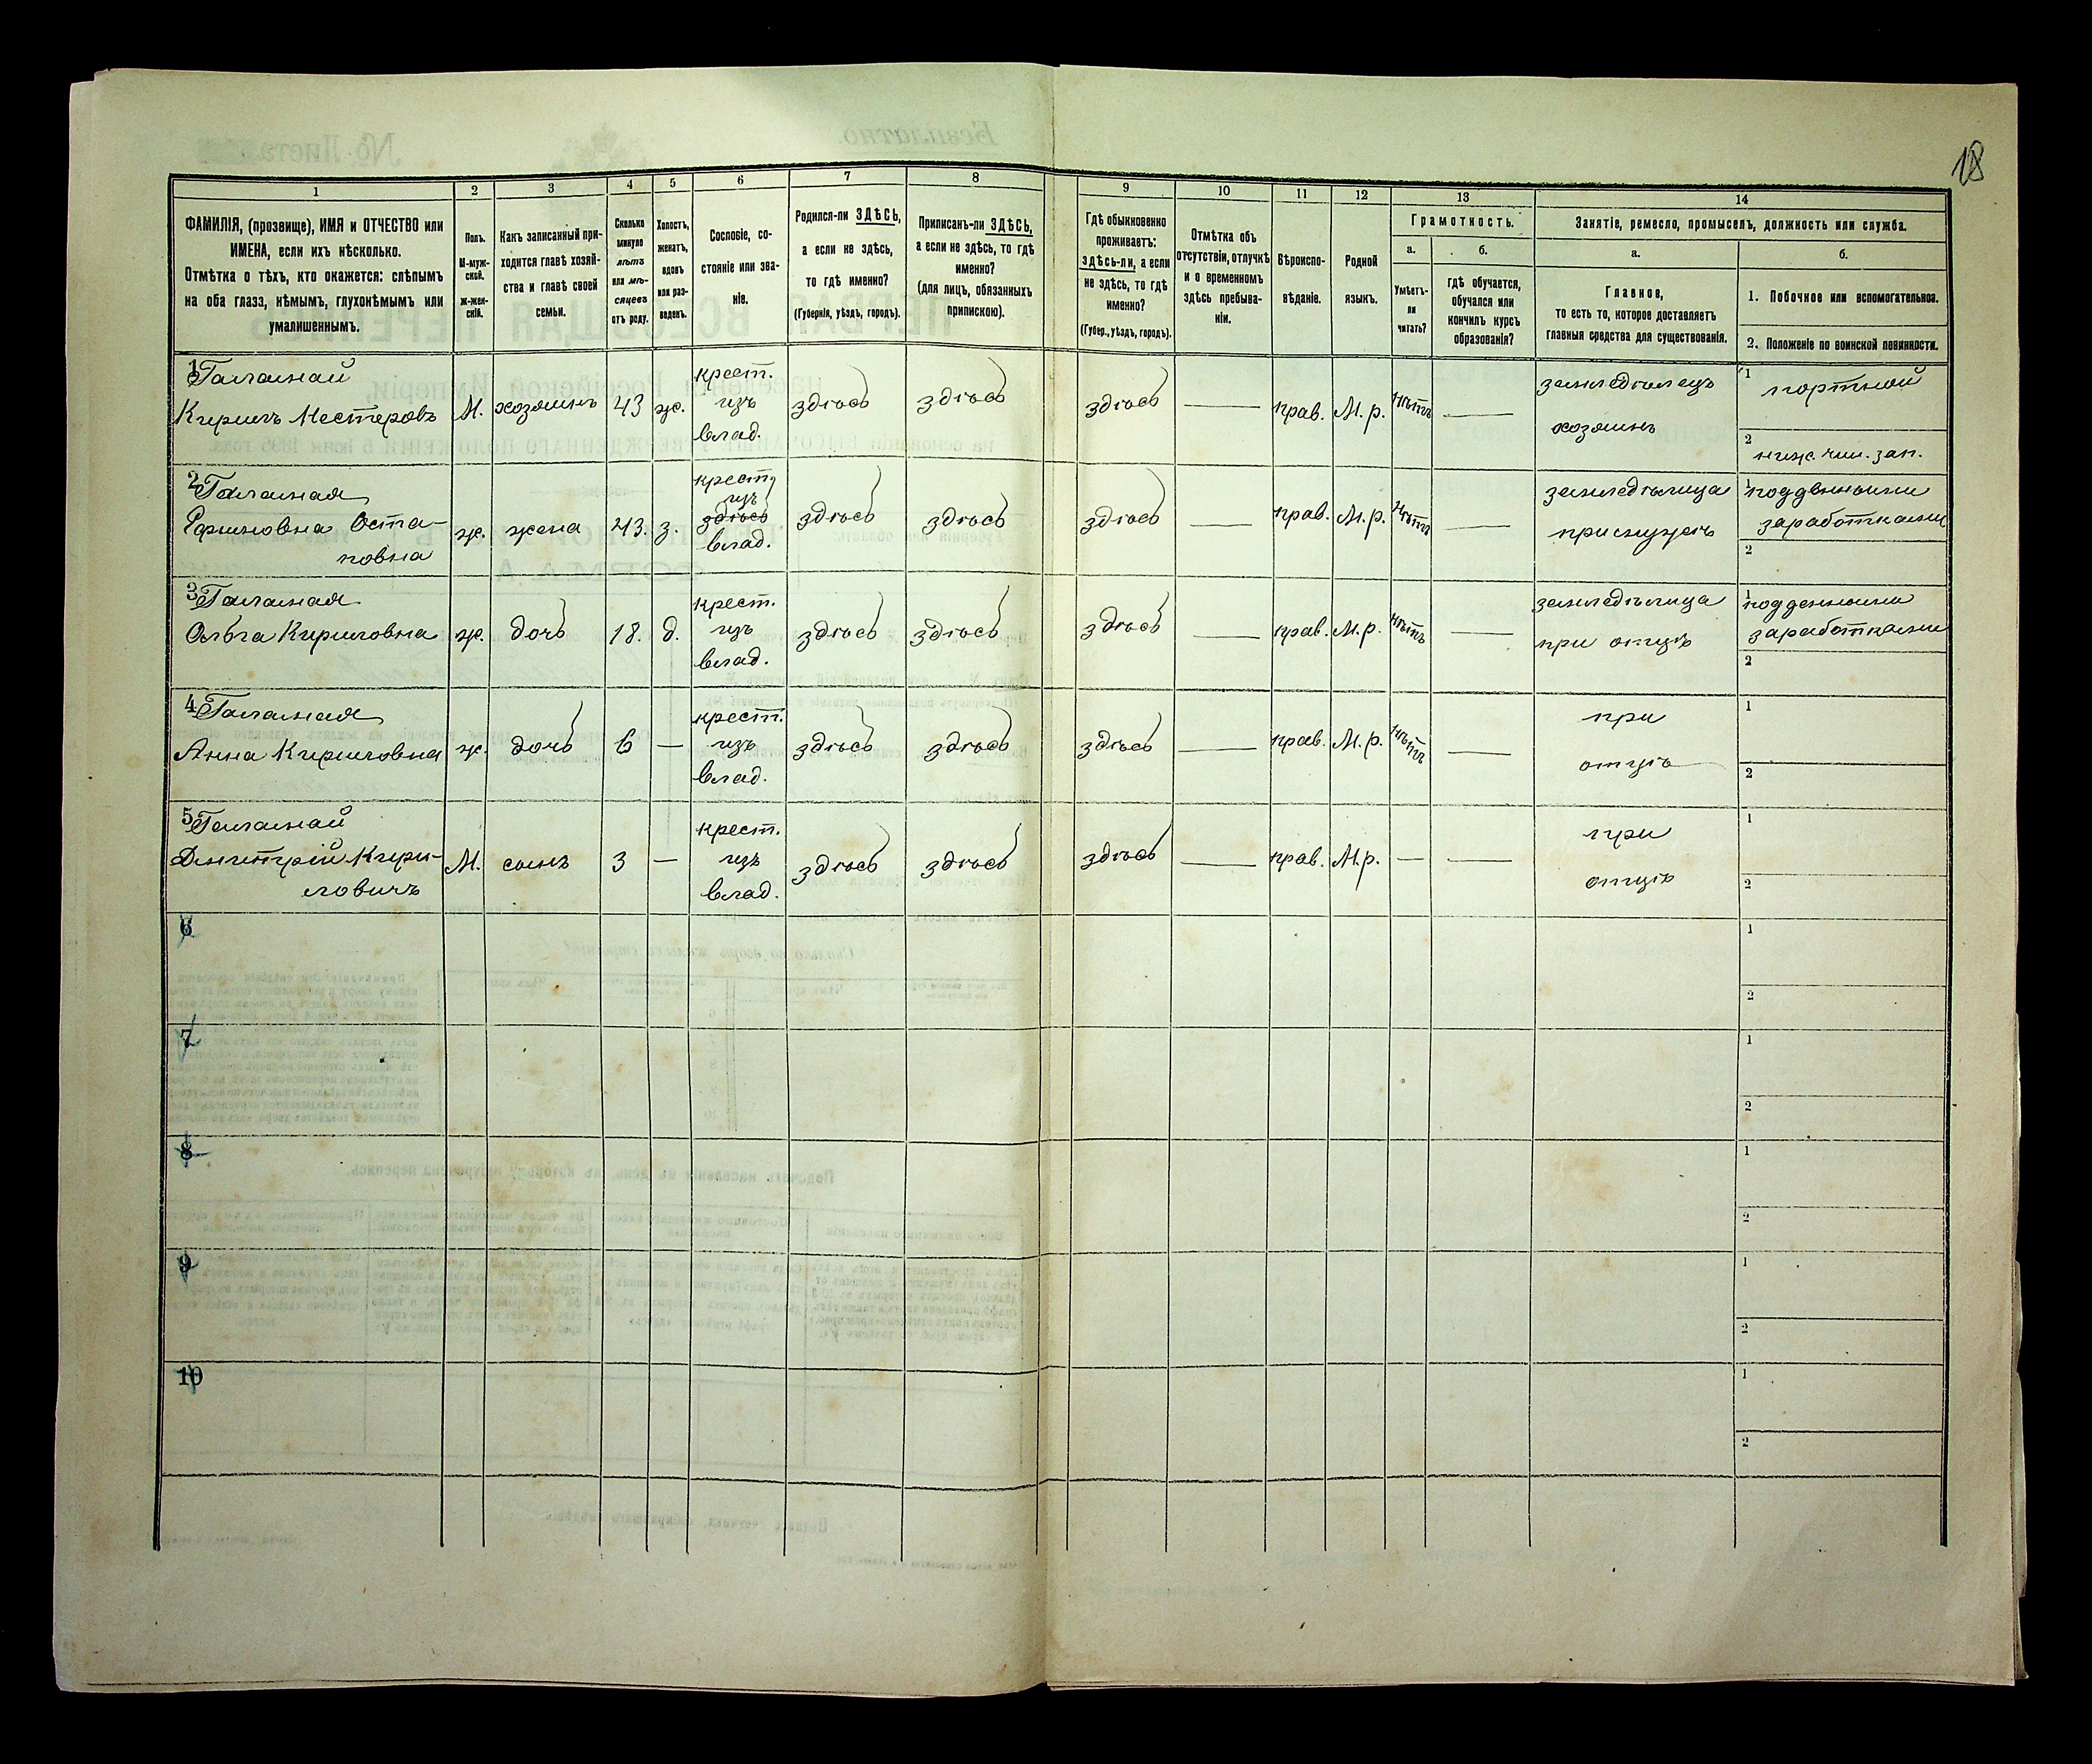 18
1
2
3
4
5
6
7
8
9
10
11
12
13
14
ФАМИЛІЯ, (прозвище), ИМЯ и ОТЧЕСТВО или
ИМЕНА, если ихъ нѣсколько.
Отмѣтка о тѣхъ, кто окажется: слѣпымъ
на оба глаза, нѣмымъ, глухонѣмымъ или
умалишеннымъ.
Полъ.
М-муж-
ской.
Ж-жен-
скій.
Какъ записанный при-
ходится главѣ хозяй-
ства и главѣ своей
семьи.
Сколько
минуло
лѣтъ
или мѣ-
сяцевъ
отъ роду.
Холостъ,
женатъ,
вдовъ
или раз-
веденъ.
Сословіе, со-
стояніе или зва-
ніе.
Родился-ли ЗДѢСЬ,
а если не здѣсь,
то гдѣ именно?
(Губернія, уѣздъ, городъ).
Приписанъ-ли ЗДѢСЬ,
а если не здѣсь, то гдѣ
именно?
(для лицъ, обязанныхъ
припискою).
Гдѣ обыкновенно
проживаетъ:
здѣсь-ли, а если
не здѣсь, то гдѣ
именно?
(Губер., уѣздъ, городъ).
Отмѣтка объ
отсутствіи, отлучкѣ
и о временномъ
здѣсь пребыва-
ніи.
Вѣроиспо-
вѣданіе.
Родной
языкъ.
Грамотность.
а.
Умѣетъ-
ли
читать?
б.
гдѣ обучается,
обучался или
кончилъ курсъ
образованія?
Занятіе, ремесло, промыселъ, должность или служба.
а.
Главное,
то есть то, которое доставляетъ
главныя средства для существованія.
б.
1. Побочное или вспомогательное.
2. Положеніе по воинской повинности.
1
Галанай
Кирилъ Нестеровъ
М.
хозяинъ
43
ж.
крест.
изъ
влад.
здѣсь
здѣсь
здѣсь
прав.
М.р.
нѣтъ
земледѣлецъ
хозяинъ
1
портной
2
ниж. чин. зап.
2
Галаная
Ефимовна Оста-
повна
ж.
жена
43.
з.
крест.
изъ
здѣсь
влад.
здѣсь
здѣсь
здѣсь
прав.
М.р.
нѣтъ
земледѣлица
при мужѣ
1
подденными
заработками
2
3
Галаная
Ольга Кириловна
ж.
дочь
18.
д.
крест.
изъ
влад.
здѣсь
здѣсь
здѣсь
прав.
М.р.
нѣтъ
земледѣлица
при отцѣ
1
подденными
заработками
2
4
Галаная
Анна Кириловна
ж.
дочь
6
крест.
изъ
влад.
здѣсь
здѣсь
здѣсь
прав.
М.р.
нѣтъ
при
отцѣ
1
2
5
Галанай
Дмитрій Кири-
ловичъ
М.
сынъ
3
крест.
изъ
влад.
здѣсь
здѣсь
здѣсь
прав.
М.р.
при
отцѣ
1
2
6
1
2
7
1
2
8
1
2
9
1
2
10
1
2